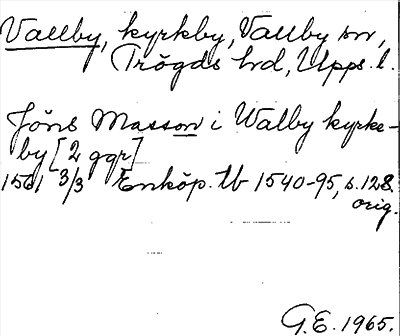 Vallby, kyrkby, Vallby sn,
Trögds hd, Upps. l.
Jöns Masson i Walby kyrke-
by [2 ggr]
1561 3/3 Enköp. tb 1540-95, s. 128,
orig.
G.E. 1965.